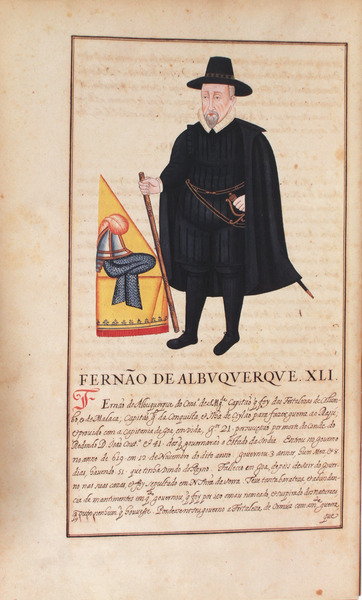 FERNÃO DE ALBVQVERQVE. XLI.
Fernão de Albuquerque do Conº. de S. Mgde. Capitão q̃ foy das Fortalezas de Chilao
bo e de Malaca, Capitão g.l da Conquista, e Ilha de Ceylão para fazer guerra ao Raju;
e provido com a Capitania de Goa em vida, 21. por morte do Conde do
Redondo D. João Cout.º e 41. dos q̃ governarão o Estado da India. Entrou no governo
no anno de 629 em 10 de Novembro do dito anno; governou 3 annos, hum Mes, e 8
dias, havendo 51 que tinha vindo do Reyno. Faleceo em Goa, depois de ter dº gover
no nas suas cazas, e foy sepultado em N. Snra. da Serra. Teve tanta barateza, e abundan
cia de mantimentos em q.to governou, q̃ foy por isso mui nomeado, e
q̃ houvesse. Perdeo em seu governo a Fortaleza de Ormuz com guerra
que